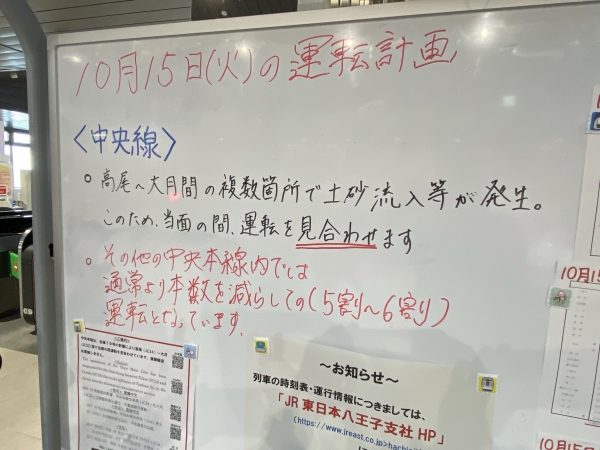 10月15日(火)の運転計画
〈中央線〉
○高尾〜大月間の複数箇所で土砂流入等が発生。
このため、当面の間、運転を見合わせます
○その他の中央本線内では
通常より本数を減らしての(5割〜6割)
運転となっています。
〜お知らせ〜
列車の時刻表・運行情報につきましては、
「JR 東日本八王子支社 HP」
(https://www.jreast.co.jp>hachi
10月15
10月15日